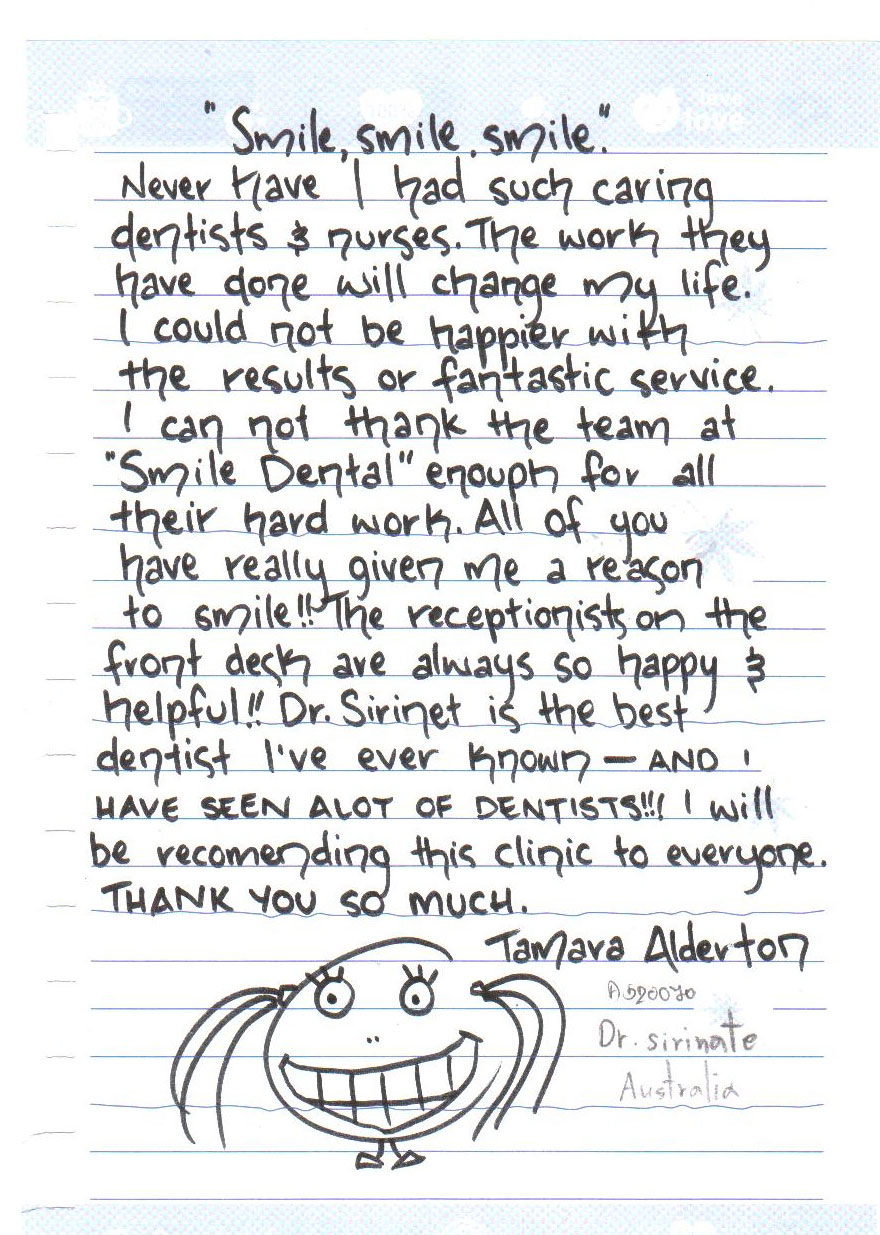 "Smile, smile, smile".
Never have I had such caring
dentists & nurses. The work they
have done will change my life.
I could not be happier with
the results or fantastic service.
I can not thank the team at
"Smile Dental" enough for all
their hard work. All of you
have really given me a reason
to smile!! The receptionists on the
front desk are always so happy &
helpful!! Dr. Sirinet is the best
dentist I've ever known — AND I
HAVE SEEN ALOT OF DENTISTS!!! I will
be recomending this clinic to everyone.
THANK YOU SO MUCH.
Tamara Alderton
A520070
Dr. sirinate
Australia
love